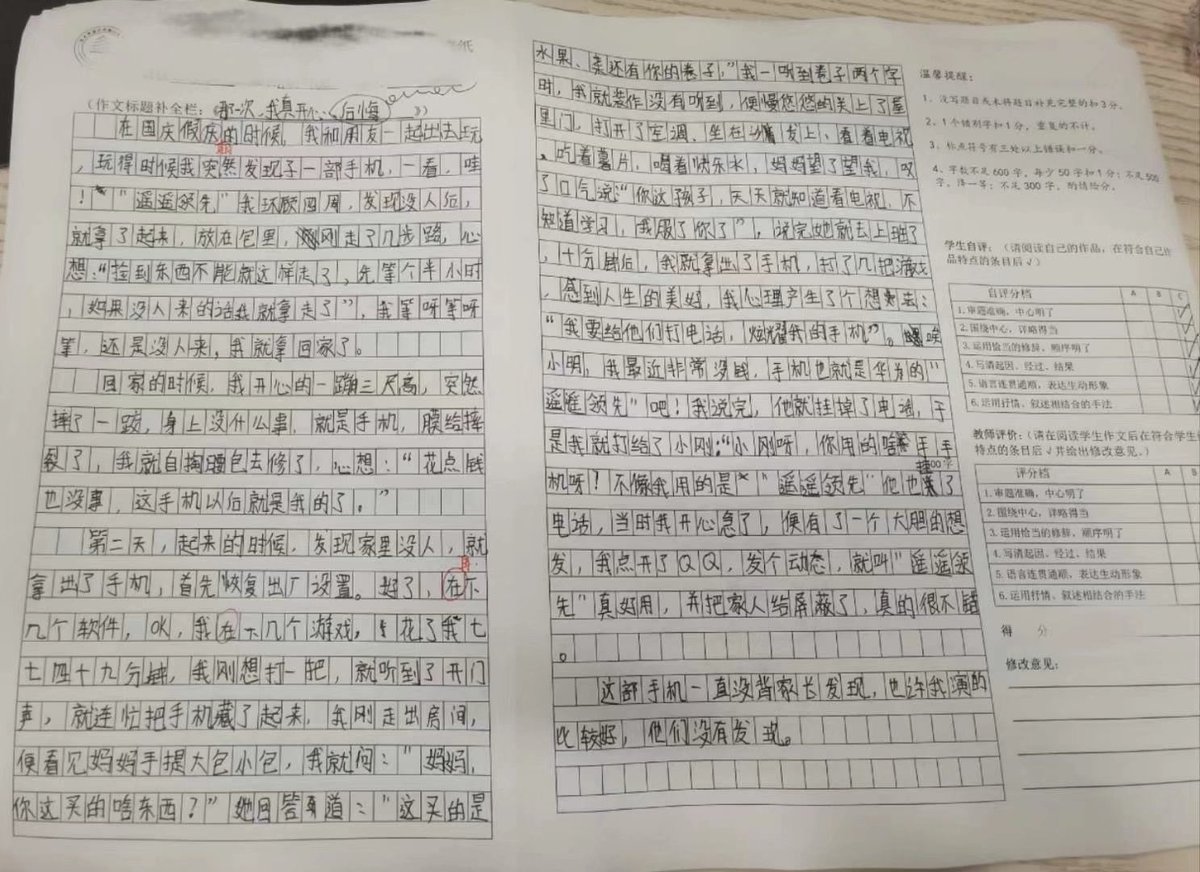 纸
(作文标题补全栏:《那一次,我真开心 后悔》)
在国庆假庆的时候,我和朋友一起出去玩
,玩得时候我突然发现了一部手机,一看,哇
!"遥遥领先"我环顾四周,发现没人后,
就拿了起来,放在包里,刚走了几步路,心
想:"捡到东西不能就这样走了,先等个半小时
,如果没人来的话我就拿走了",我等呀等呀
等,还是没人来,我就拿回家了。
回家的时候,我开心的一蹦三尺高,突然
摔了一跤,身上没什么事,就是手机,膜给摔
裂了,我就自掏腰包去修了,心想:"花点钱
也没事,这手机以后就是我的了。"
第二天,起来的时候,发现家里没人,就
拿出了手机,首先恢复出厂设置。好了,在下
几个软件,OK,我在下几个游戏,花了我七
七四十九分钟,我刚想打一把,就听到了开门
声,就连忙把手机藏了起来,我刚走出房间,
便看见妈妈手提大包小包,我就问:"妈妈,
你这买的啥东西?"她回答道:"这买的是
水果、菜还有你的卷子,"我一听到卷子两个字
时,我就装作没有听到,便慢悠悠的关上了屋
里门,打开了空调、坐在沙发上,看着电视
、吃着薯片,喝着快乐水,妈妈望了望我,叹
了口气说:"你这孩子,天天就知道看电视,不
知道学习,我服了你了",说完她就去上班了
,十分钟后,我就拿出了手机,打了几把游戏
,感到人生的美好,我心理产生了个想法:
"我要给他们打电话,炫耀我的手机"。喂
小明,我最近非常没钱,手机也就是华为的"
遥遥领先"吧!我说完,他就挂掉了电话,于
是我就打给了小刚:"小刚呀,你用的啥手
机呀?不像我用的是"遥遥领先"他也挂了
600字
电话,当时我开心急了,便有了一个大胆的想
发,我点开了QQ,发个动态,就叫"遥遥领
先"真好用,并把家人给屏蔽了,真的很不错
。
这部手机一直没背家长发现,也许我演的
比较好,他们没有发现。
温馨提醒:
1、没写题目或未将题目补充完整的扣3分。
2、1个错别字扣1分,重复的不计。
3、标点符号有三处以上错误扣一分。
4、字数不足600字,每少50字扣1分;不足500
字,降一等;不足300字,酌情给分。
学生自评:(请阅读自己的作品,在符合自己作
品特点的条目后√)
自评分档 A B C
1.审题准确,中心明了 √
2.围绕中心,详略得当 √
3.运用恰当的修辞,顺序明了 √
4.写清起因、经过、结果 √
5.语言连贯通顺,表达生动形象 √
6.运用抒情、叙述相结合的手法 √
教师评价:(请在阅读学生作文后在符合学生
特点的条目后√并给出修改意见。)
评分档 A B
1.审题准确,中心明了
2.围绕中心,详略得当
3.运用恰当的修辞,顺序明了
4.写清起因、经过、结果
5.语言连贯通顺,表达生动形象
6.运用抒情、叙述相结合的手法
得 分
修改意见: